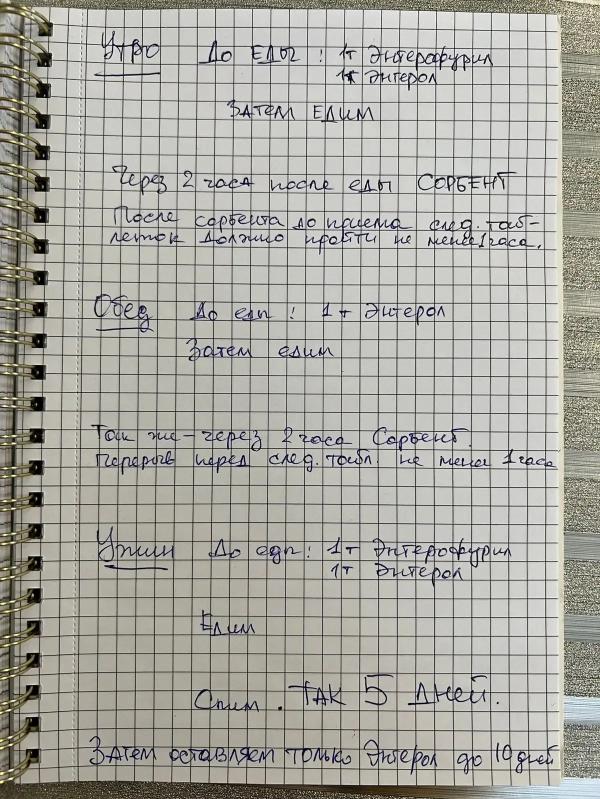 Утро До еды : 1т Энтерофурил
1т Энтерол
Затем едим
Через 2 часа после еды СОРБЕНТ
После сорбента до приема след. таб-
леток должно пройти не менее 1 часа.
Обед До еды : 1т Энтерол
Затем едим
Так же – через 2 часа Сорбент.
Перерыв перед след. табл. не мене 1 часа
Ужин До еды : 1т Энтерофурил
1т Энтерол
Едим
Спим . ТАК 5 дней.
Затем оставляем только Энтерол до 10 дней